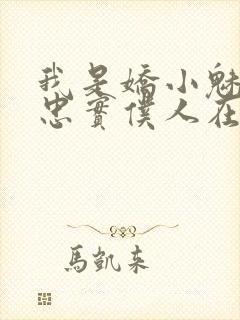 我是嬌小魅
忠實僕人在
馬凱来